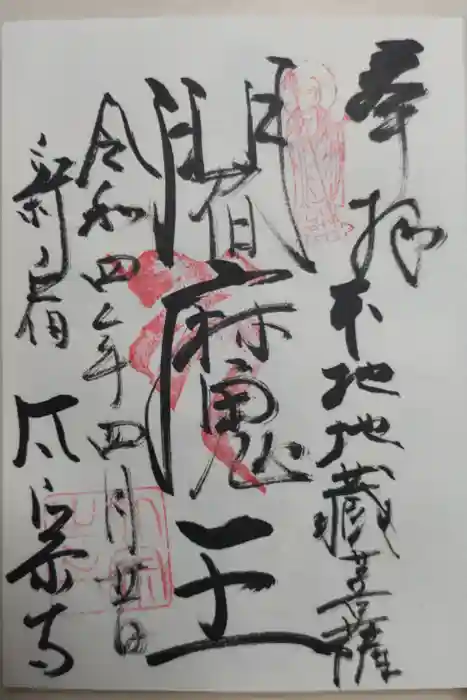 奉拝
本地地蔵菩薩
閻魔王
令和四年四月廿日
新宿 太宗寺